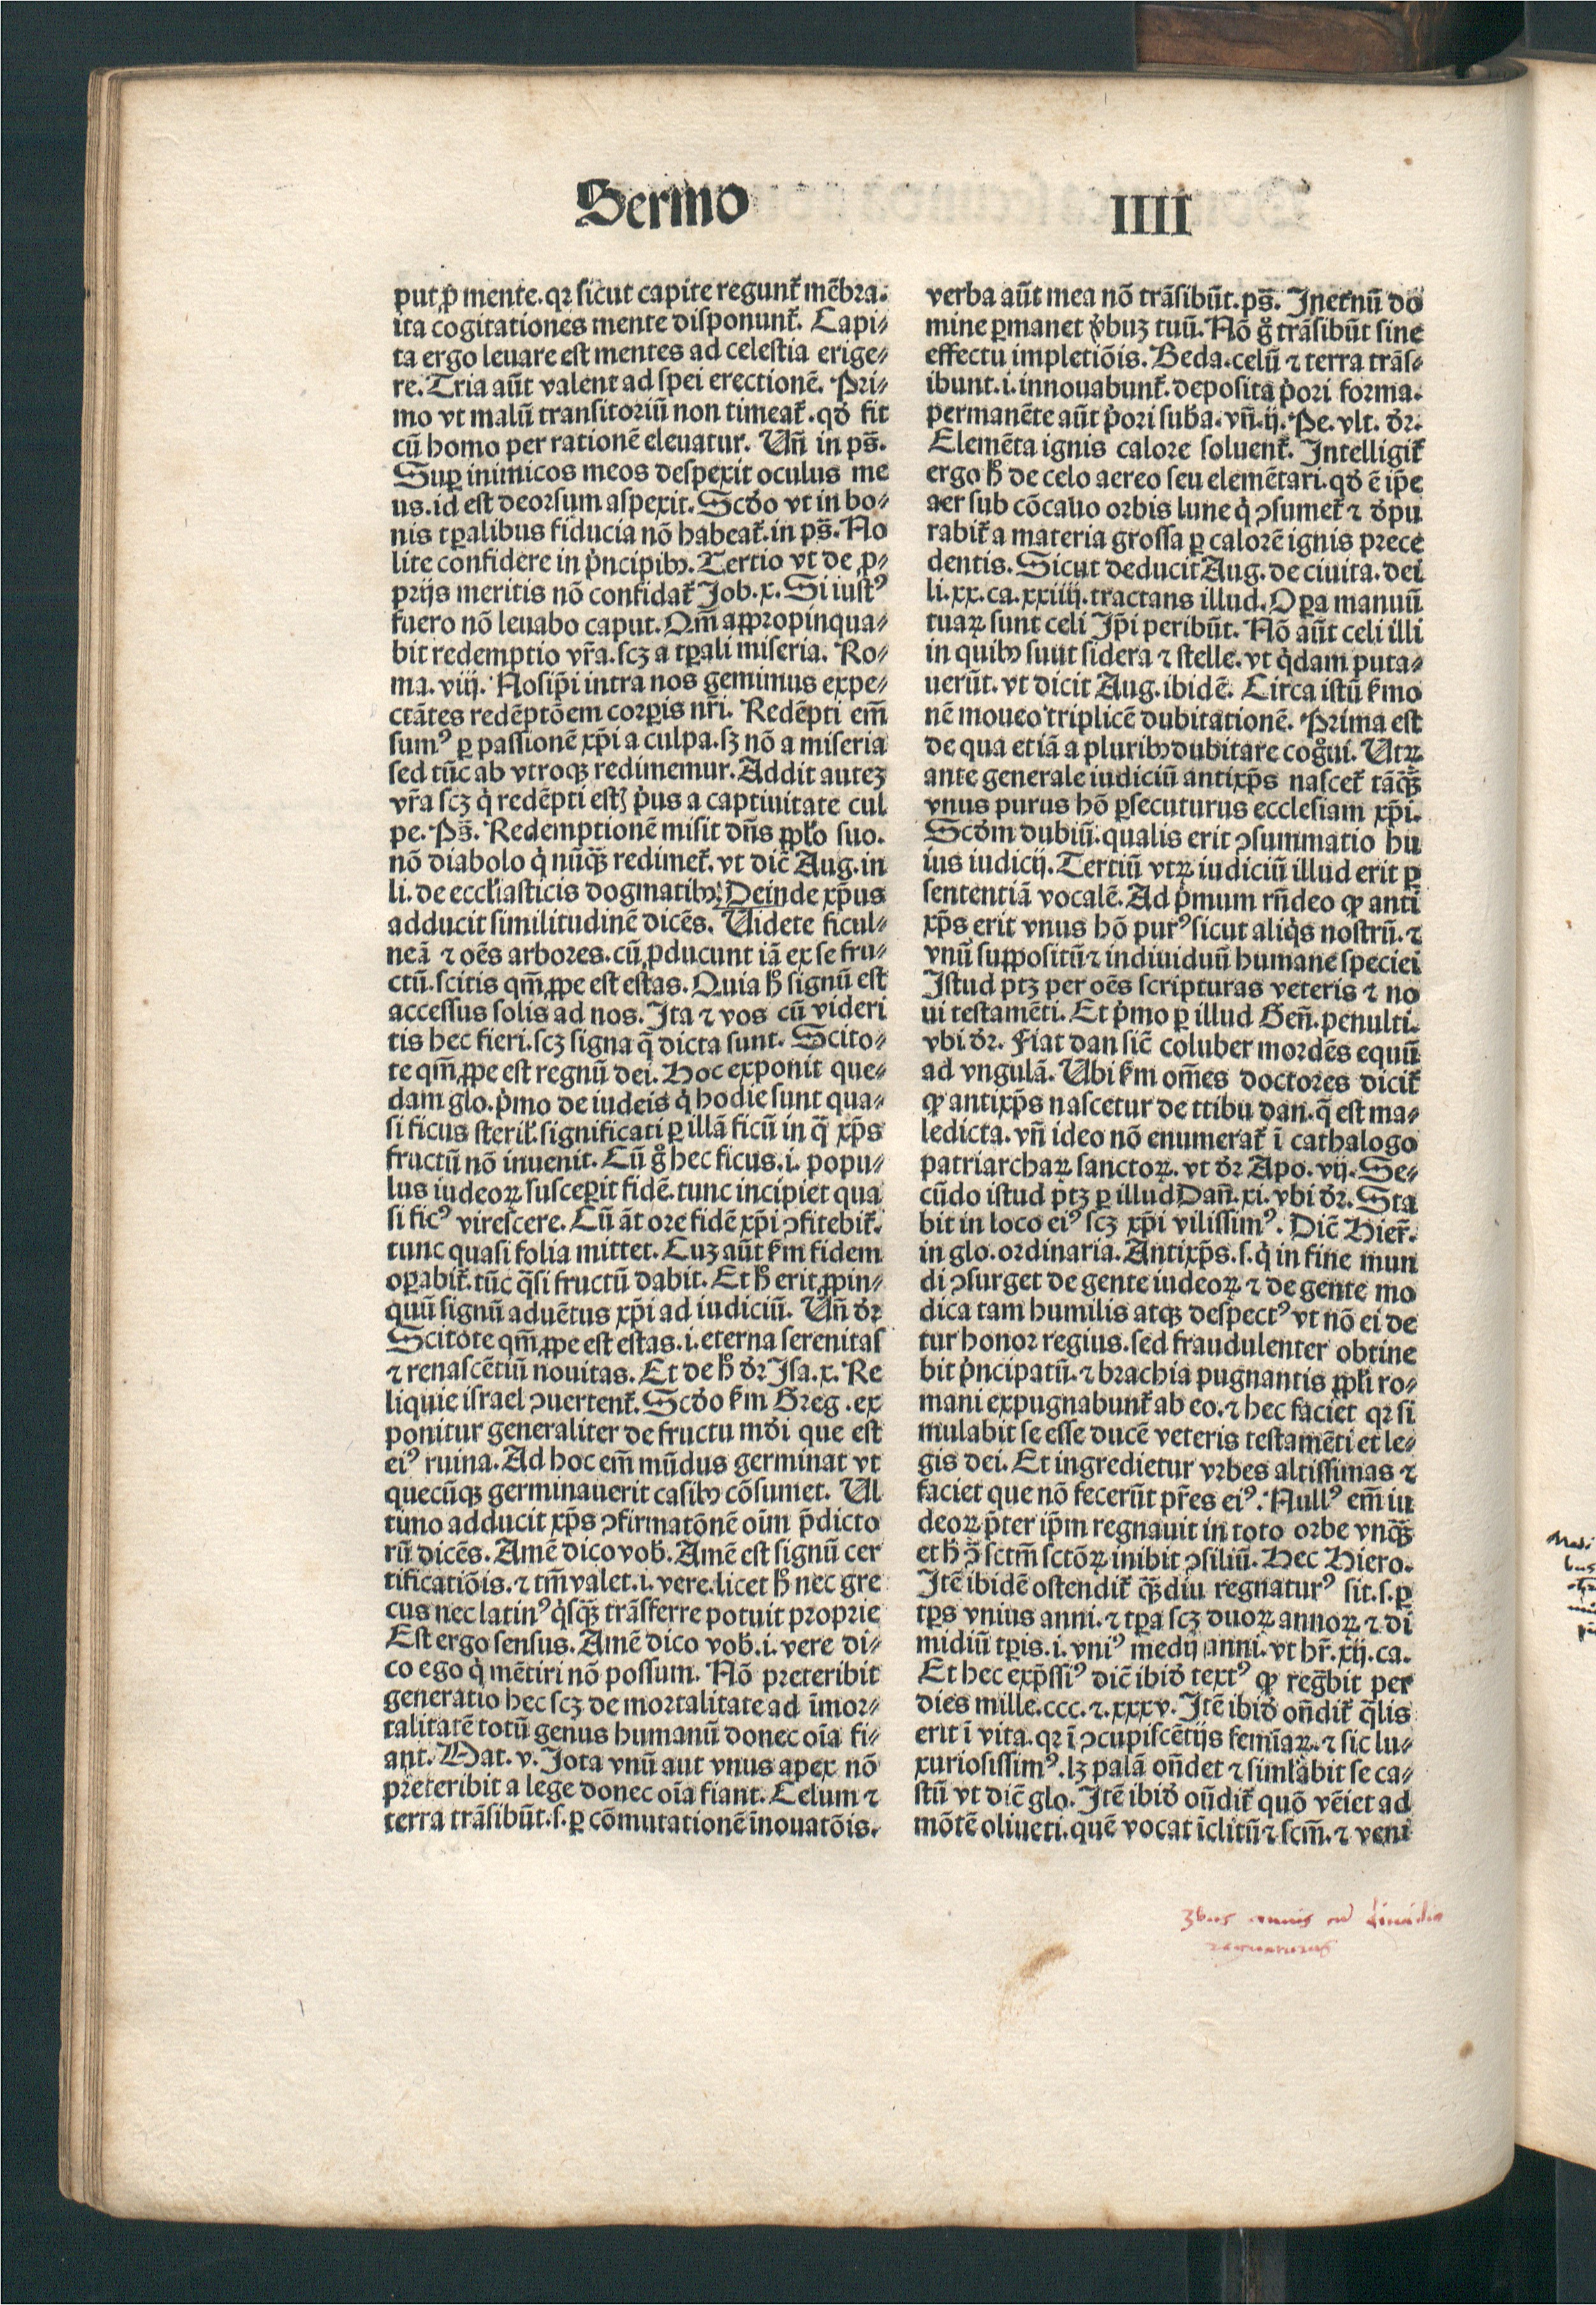 Sermo
IIII
put ꝓ mente. qꝛ sicut capite regunt᷑ mēbra.
ita cogitationes mente disponunt᷑. Capi⸗
ta ergo leuare est mentes ad celestia erige⸗
re. Tria aūt valent ad spei erectionē. Pri⸗
mo vt malū transitoriū non timeat᷑. qḋ fit
cū homo per rationē eleuatur. Vn̄ in ps̄.
Suꝑ inimicos meos despexit oculus me
us. id est deorsum aspexit. Scḋo vt in bo⸗
nis tꝑalibus fiducia nō habeat᷑. in ps̄. No
lite confidere in pͥncipibꝰ. Tertio vt de ꝓ⸗
prijs meritis nō confidat᷑ Job. x. Si iustꝰ
fuero nō leuabo caput. Qm̄ appropinqua⸗
bit redemptio vr̄a. scꝫ a tꝑali miseria. Ro⸗
ma. viij. Nosip̄i intra nos gemimus expe⸗
ctātes redēptōem corꝑis nr̄i. Redēpti em̄
sumꝰ ꝑ passionē xp̄i a culpa. sꝫ nō a miseria
sed tūc ab vtroqꝫ redimemur. Addit auteꝫ
vr̄a scꝫ qͥ redēpti estꝭ pͥus a captiuitate cul
pe. Ps̄. Redemptionē misit dn̄s ppl̓o suo.
nō diabolo qͥ nūqꝫ̄ redimet᷑. vt dic̄ Aug. in
li. de eccl̓iasticis dogmatibꝰ. Deinde xp̄us
adducit similitudinē dicēs. Uidete ficul⸗
neā ⁊ oēs arbores. cū ꝓducunt iā ex se fru⸗
ctū. scitis qm̄ ꝓpe est estas. Quia hͦ signū est
accessus solis ad nos. Ita ⁊ vos cū videri
tis hec fieri. scꝫ signa q̄ dicta sunt. Scito⸗
te qm̄ ꝓpe est regnū dei. Hoc exponit que⸗
dam glo. pͥmo de iudeis qͥ hodie sunt qua⸗
si ficus steril̓. significati ꝑ illā ficū in q̄ xp̄s
fructū nō inuenit. Cū gͦ hec ficus. i. popu⸗
lus iudeoꝝ susceꝑit fidē. tunc incipiet qua
si ficꝰ virescere. Cū āt ore fidē xp̄i ↄfitebit᷑.
tunc quasi folia mittet. Cuꝫ aūt ẜm fidem
oꝑabit᷑. tūc q̄si fructū dabit. Et hͦ erit ꝓpin⸗
quū signū aduētus xp̄i ad iudiciū. Vn̄ dr̄
Scitote qm̄ ꝓpe est estas. i. eterna serenitas
⁊ renascētiū nouitas. Et de hͦ dr̄ Isa. x. Re
liquie israel ↄuertent᷑. Scḋo ẜm Greg. ex
ponitur generaliter de fructu mḋi que est
eiꝰ ruina. Ad hoc em̄ mūdus germinat vt
quecūqꝫ germinauerit casibꝰ cōsumet. Vl
timo adducit xp̄s ↄfirmatōnē oīm p̄dicto
rū dicēs. Amē dico vob̓. Amē est signū cer
tificatiōis. ⁊ tm̄ valet. i. vere. licet hͦ nec gre
cus nec latinꝰ qͥsqꝫ̄ trāsferre potuit proprie
Est ergo sensus. Amē dico vob̓. i. vere di⸗
co ego qͥ mētiri nō possum. Nō preteribit
generatio hec scꝫ de mortalitate ad īmor⸗
talitatē totū genus humanū donec oīa fi⸗
ant. Mat. v. Jota vnū aut vnus apex nō
preteribit a lege donec oīa fiant. Celum ⁊
terra trāsibūt. s. ꝑ cōmutationē īnouatōis.
verba aūt mea nō trāsibūt. ps̄. Inet̓nū do
mine ꝑmanet v̓buꝫ tuū. Nō gͦ trāsibūt sine
effectu impletiōis. Beda. celū ⁊ terra trās⸗
ibunt. i. innouabunt᷑. deposita pͥori forma.
permanēte aūt pͥori sub̓a. vn̄. ij. Pe. vlt. dr̄.
Elemēta ignis calore soluent᷑. Intelligit᷑
ergo hͦ de celo aereo seu elemētari. qḋ ē ip̄e
aer sub cōcauo orbis lune qͥ ↄsumet᷑ ⁊ d̓pu
rabit᷑ a materia grossa ꝑ calorē ignis prece
dentis. Sicut deducit Aug. de ciuita. dei
li. xx. ca. xxiiij. tractans illud. Oꝑa manuū
tuaꝝ sunt celi Ip̄i peribūt. Nō aūt celi illi
in quibꝰ suut sidera ⁊ stelle. vt qͥdam puta⸗
uerūt. vt dicit Aug. ibidē. Circa istū ẜmo
nē moueo triplicē dubitationē. Prima est
de qua etiā a pluribꝰ dubitare cogͦui. Vtꝝ
ante generale iudiciū antixp̄s nascet᷑ tāqꝫ̄
vnus purus hō ꝑsecuturus ecclesiam xp̄i.
Scḋm dubiū. qualis erit ↄsummatio hu
ius iudicij. Tertiū vtꝝ iudiciū illud erit ꝑ
sententiā vocalē. Ad pͥmum rn̄deo ꝙ anti
xp̄s erit vnus hō purꝰ sicut aliqͥs nostrū. ⁊
vnū suppositū ⁊ indiuiduū humane speciei
Istud ptꝫ per oēs scripturas veteris ⁊ no
ui testamēti. Et pͥmo ꝑ illud Gen̄. penulti.
vbi dr̄. Fiat dan sic̄ coluber mordēs equū
ad vngulā. Ubi ẜm om̄es doctores dicit᷑
ꝙ antixp̄s nascetur de ttibu dan. q̄ est ma⸗
ledicta. vn̄ ideo nō enumerat᷑ ī cathalogo
patriarchaꝝ sanctoꝝ. vt dr̄ Apo. vij. Se⸗
cūdo istud ptꝫ ꝑ illud Dan̄. xi. vbi dr̄. Sta
bit in loco eiꝰ scꝫ xp̄i vilissimꝰ. Dic̄ Hier̄.
in glo. ordinaria. Antixp̄s. s. qͥ in fine mun
di ↄsurget de gente iudeoꝝ ⁊ de gente mo
dica tam humilis atqꝫ despectꝰ vt nō ei de
tur honor regius. sed fraudulenter obtine
bit pͥncipatū. ⁊ brachia pugnantis ppl̓i ro⸗
mani expugnabunt᷑ ab eo. ⁊ hec faciet qꝛ si
mulabit se esse ducē veteris testamēti et le⸗
gis dei. Et ingredietur vrbes altissimas ⁊
faciet que nō fecerūt pr̄es eiꝰ. Nullꝰ em̄ iu
deoꝝ p̄ter ip̄m regnauit in toto orbe vnqꝫ̄
et hͦ ↄ̄ sctm̄ sctōꝝ inibit ↄsiliū. Hec Hiero.
Itē ibidē ostendit᷑ qꝫ̄diu regnaturꝰ sit. s. ꝑ
tꝑs vnius anni. ⁊ tꝑa scꝫ duoꝝ annoꝝ ⁊ di
midiū tꝑis. i. vniꝰ medij anni. vt hr̄. xij. ca.
Et hec exp̄ssiꝰ dic̄ ibiḋ textꝰ ꝙ reg̅bit per
dies mille. ccc. ⁊. xxxv. Itē ibiḋ on̄dit᷑ q̄lis
erit ī vita. qꝛ ī ↄcupiscētijs femīaꝝ. ⁊ sic lu⸗
xuriosissimꝰ. lꝫ palā on̄det ⁊ siml̓abit se ca⸗
stū vt dic̄ glo. Itē ibiḋ oūdit᷑ quō vēiet ad
mōtē oliueti. quē vocat īclitū ⁊ scm̄. ⁊ veni